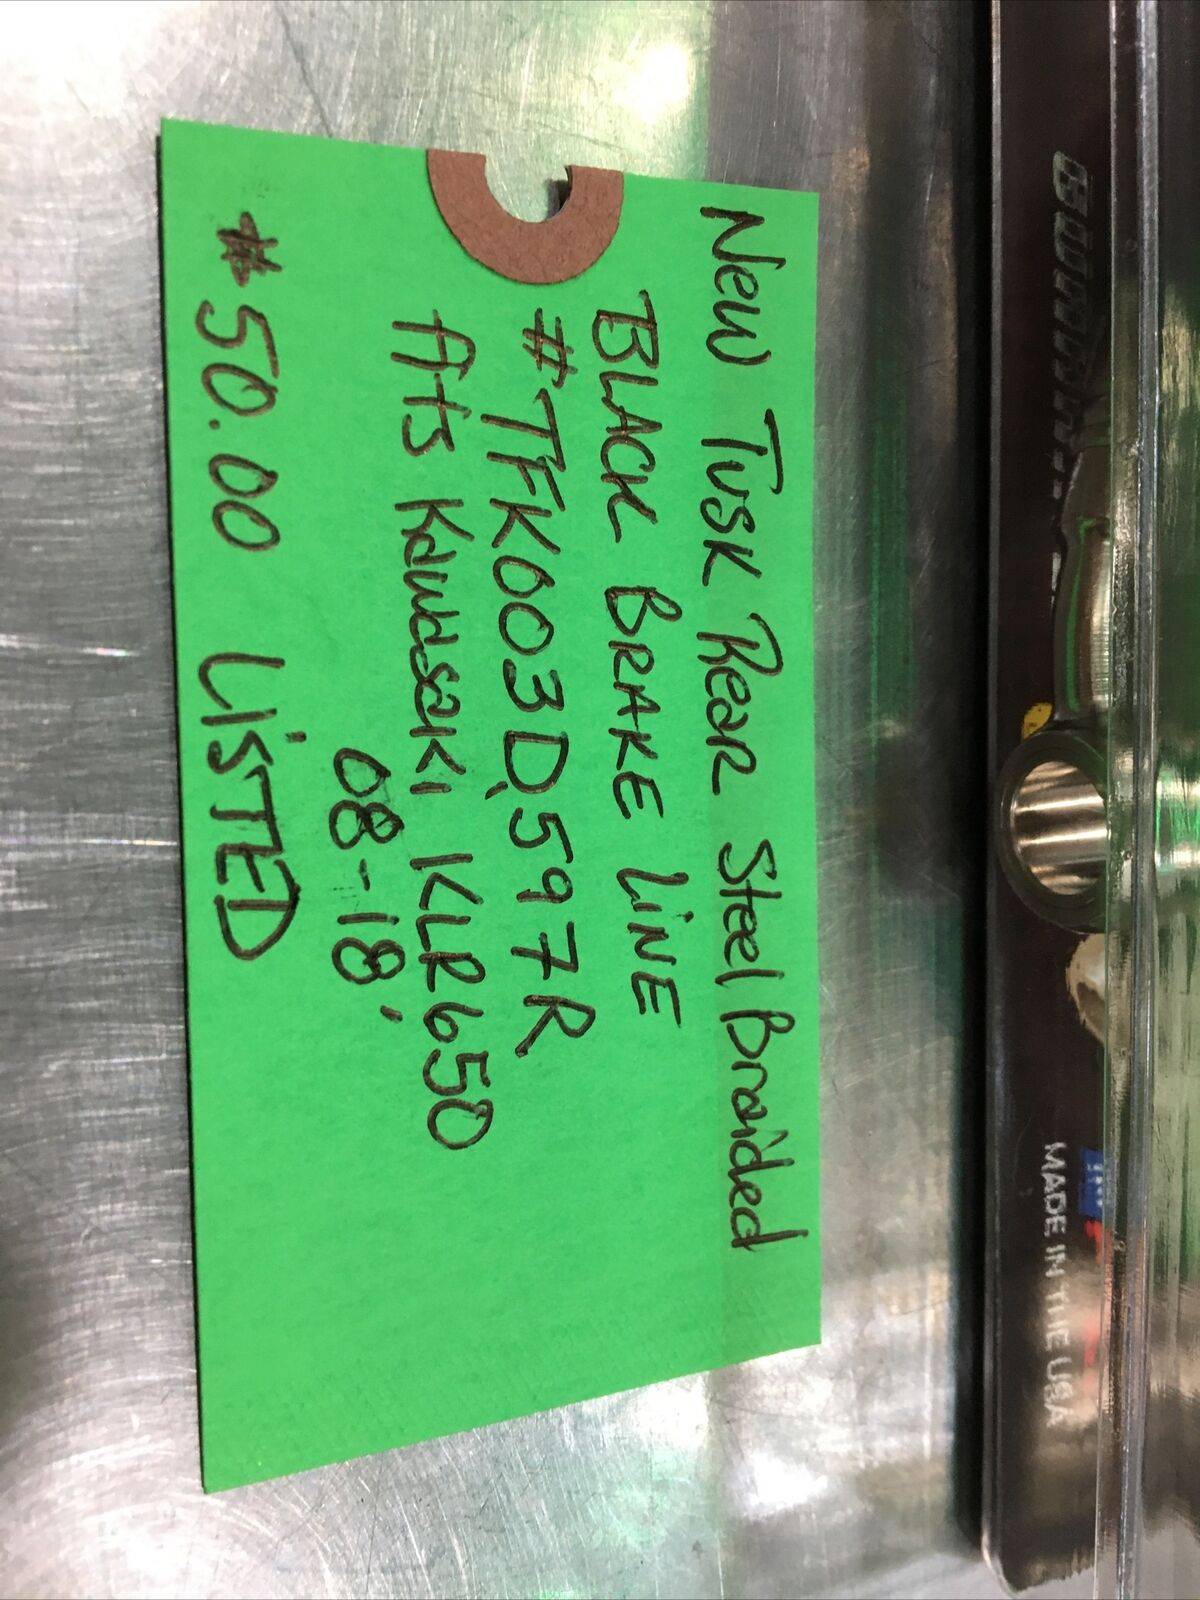 New Tusk Rear Steel Braided
BLACK BRAKE LINE
#TFK003D597R
fits Kawasaki KLR650
08-18'
$50.00 LISTED
MADE IN THE USA